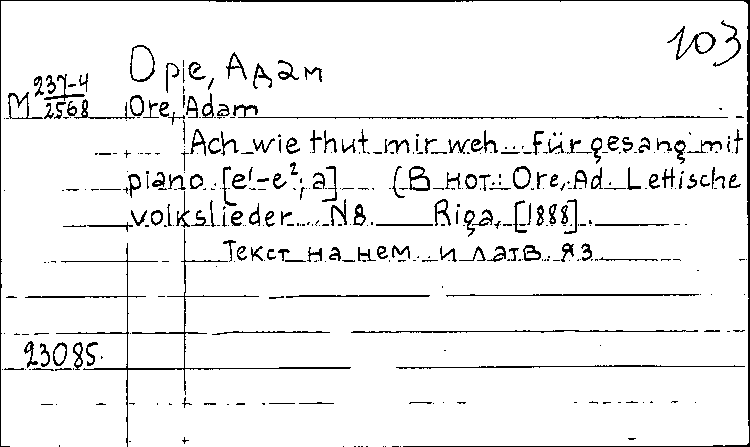 103
Оре, Адам
М 237-4/2568 Ore, Adam
Ach wie thut mir weh. Für gesang mit
piano. [e¹-e²; a] (В нот.: Ore, Ad. Lettische
volkslieder. N8. Riga, [1888].
Текст на нем. и латв. яз.
23085.